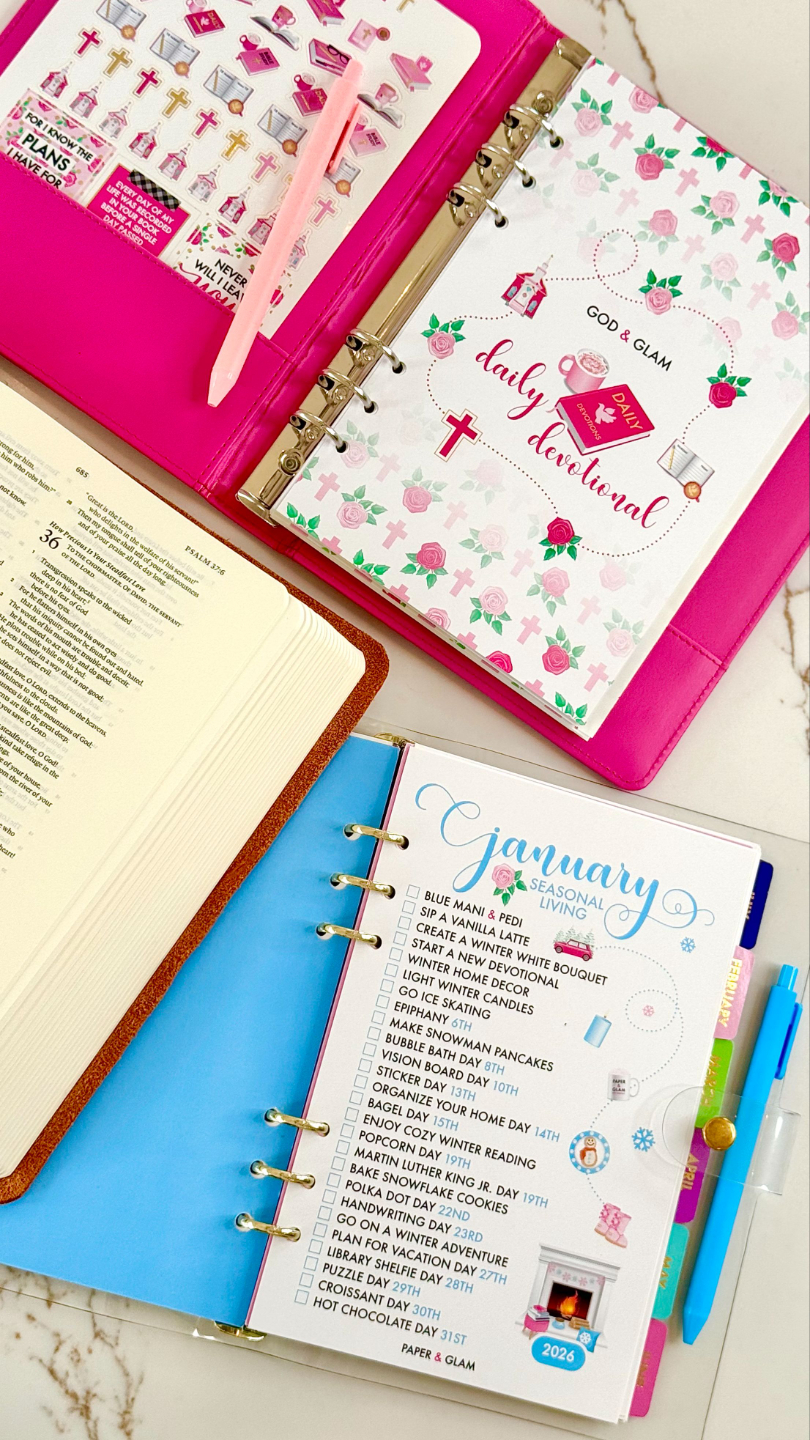 FOR I KNOW THE
PLANS
I HAVE FOR
EVERY DAY OF MY
LIFE WAS RECORDED
IN YOUR BOOK
BEFORE A SINGLE
DAY PASSED.
NEVER
WILL I LEAVE
GOD & GLAM
daily
devotional
DAILY
DEVOTIONS
685
PSALM 37:6
"Great is the LORD,
who delights in the welfare of his servant!"
Then my tongue shall tell of your righteousness
and of your praise all the day long.
How Precious Is Your Steadfast Love
36 TO THE CHOIRMASTER. OF DAVID, THE SERVANT
OF THE LORD.
Transgression speaks to the wicked
deep in his heart;
there is no fear of God
before his eyes.
For he flatters himself in his own eyes
that his iniquity cannot be found out and hated.
The words of his mouth are trouble and deceit;
he has ceased to act wisely and do good.
He plots trouble while on his bed;
he sets himself in a way that is not good;
does not reject evil.
love, O LORD, extends to the heavens,
to the clouds.
is like the mountains of God;
are like the great deep;
you save, O LORD.
steadfast love, O God!
take refuge in the
of your house,
from the river of your
january
SEASONAL
LIVING
BLUE MANI & PEDI
SIP A VANILLA LATTE
CREATE A WINTER WHITE BOUQUET
START A NEW DEVOTIONAL
WINTER HOME DECOR
LIGHT WINTER CANDLES
GO ICE SKATING
EPIPHANY 6TH
MAKE SNOWMAN PANCAKES
BUBBLE BATH DAY 8TH
VISION BOARD DAY 10TH
STICKER DAY 13TH
ORGANIZE YOUR HOME DAY 14TH
BAGEL DAY 15TH
ENJOY COZY WINTER READING
POPCORN DAY 19TH
MARTIN LUTHER KING JR. DAY 19TH
BAKE SNOWFLAKE COOKIES
POLKA DOT DAY 22ND
HANDWRITING DAY 23RD
GO ON A WINTER ADVENTURE
PLAN FOR VACATION DAY 27TH
LIBRARY SHELFIE DAY 28TH
PUZZLE DAY 29TH
CROISSANT DAY 30TH
HOT CHOCOLATE DAY 31ST
PAPER & GLAM
2026
PAPER
& GLAM
FEBRUARY
APRIL
MAY